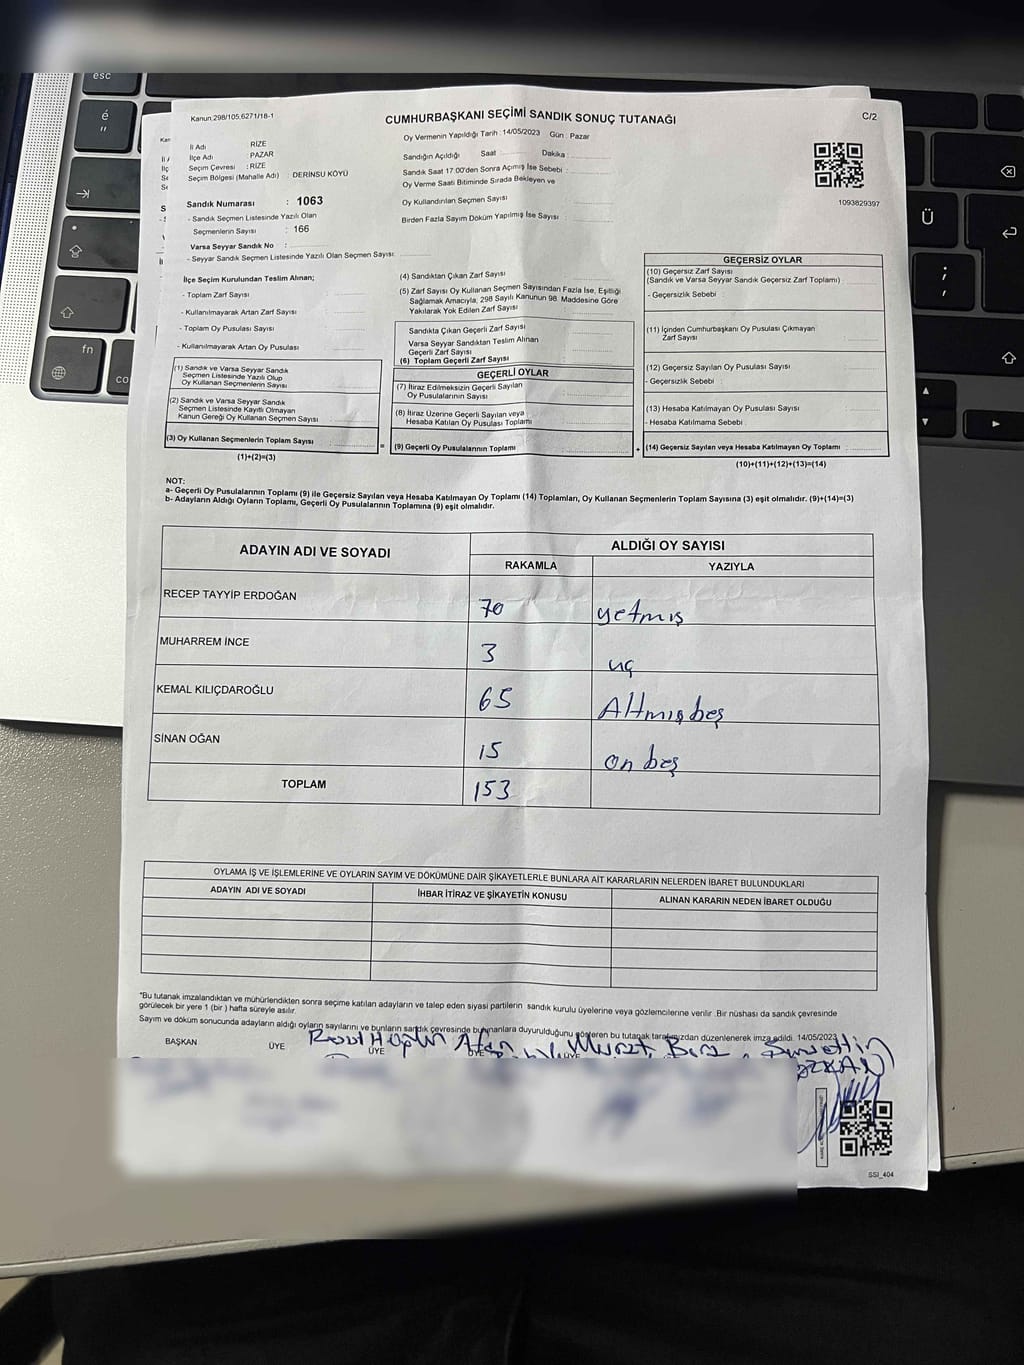 esc
é
"
fn
co
Ü
;
:
Kanun,298/105,6271/18-1
CUMHURBAŞKANI SEÇİMİ SANDIK SONUÇ TUTANAĞI
C/2
İl Adı RİZE
İlçe Adı PAZAR
Seçim Çevresi : RİZE
Seçim Bölgesi (Mahalle Adı) : DERİNSU KÖYÜ
Sandık Numarası : 1063
- Sandık Seçmen Listesinde Yazılı Olan
Seçmenlerin Sayısı : 166
Varsa Seyyar Sandık No :
- Seyyar Sandık Seçmen Listesinde Yazılı Olan Seçmen Sayısı:
Oy Vermenin Yapıldığı Tarih : 14/05/2023 Gün : Pazar
Sandığın Açıldığı Saat Dakika
Sandık Saat 17.00'den Sonra Açımış İse Sebebi :
Oy Verme Saati Bitiminde Sırada Bekleyen ve
Oy Kullandırılan Seçmen Sayısı
Birden Fazla Sayım Döküm Yapılmış İse Sayısı :
1093829397
İlçe Seçim Kurulundan Teslim Alınan;
- Toplam Zarf Sayısı
- Kullanılmayarak Artan Zarf Sayısı
- Toplam Oy Pusulası Sayısı
- Kullanılmayarak Artan Oy Pusulası
(1) Sandık ve Varsa Seyyar Sandık
Seçmen Listesinde Yazılı Olup
Oy Kullanan Seçmenlerin Sayısı
(2) Sandık ve Varsa Seyyar Sandık
Seçmen Listesinde Kayıtlı Olmayan
Kanun Gereği Oy Kullanan Seçmen Sayısı
(3) Oy Kullanan Seçmenlerin Toplam Sayısı
(1)+(2)=(3)
(4) Sandıktan Çıkan Zarf Sayısı
(5) Zarf Sayısı Oy Kullanan Seçmen Sayısından Fazla İse, Eşitliği
Sağlamak Amacıyla, 298 Sayılı Kanunun 98. Maddesine Göre
Yakılarak Yok Edilen Zarf Sayısı
Sandıkta Çıkan Geçerli Zarf Sayısı
Varsa Seyyar Sandıktan Teslim Alınan
Geçerli Zarf Sayısı
(6) Toplam Geçerli Zarf Sayısı
GEÇERLİ OYLAR
(7) İtiraz Edilmeksizin Geçerli Sayılan
Oy Pusulalarının Sayısı
(8) İtiraz Üzerine Geçerli Sayılan veya
Hesaba Katılan Oy Pusulası Toplamı
= (9) Geçerli Oy Pusulalarının Toplamı
GEÇERSİZ OYLAR
(10) Geçersiz Zarf Sayısı
(Sandık ve Varsa Seyyar Sandık Geçersiz Zarf Toplamı) :
- Geçersizlik Sebebi
(11) İçinden Cumhurbaşkanı Oy Pusulası Çıkmayan
Zarf Sayısı
(12) Geçersiz Sayılan Oy Pusulası Sayısı
- Geçersizlik Sebebi
(13) Hesaba Katılmayan Oy Pusulası Sayısı
- Hesaba Katılmama Sebebi
+ (14) Geçersiz Sayılan veya Hesaba Katılmayan Oy Toplamı
(10)+(11)+(12)+(13)=(14)
NOT:
a- Geçerli Oy Pusulalarının Toplamı (9) ile Geçersiz Sayılan veya Hesaba Katılmayan Oy Toplamı (14) Toplamları, Oy Kullanan Seçmenlerin Toplam Sayısına (3) eşit olmalıdır. (9)+(14)=(3)
b- Adayların Aldığı Oyların Toplamı, Geçerli Oy Pusulalarının Toplamına (9) eşit olmalıdır.
ADAYIN ADI VE SOYADI ALDIĞI OY SAYISI
RAKAMLA YAZIYLA
RECEP TAYYİP ERDOĞAN 70 yetmış
MUHARREM İNCE 3 uç
KEMAL KILIÇDAROĞLU 65 Altmışbeş
SİNAN OĞAN 15 on beş
TOPLAM 153
OYLAMA İŞ VE İŞLEMLERİNE VE OYLARIN SAYIM VE DÖKÜMÜNE DAİR ŞİKAYETLERLE BUNLARA AİT KARARLARIN NELERDEN İBARET BULUNDUKLARI
ADAYIN ADI VE SOYADI İHBAR İTİRAZ VE ŞİKAYETİN KONUSU ALINAN KARARIN NEDEN İBARET OLDUĞU
"Bu tutanak imzalandıktan ve mühürlendikten sonra seçime katılan adayların ve talep eden siyasi partilerin sandık kurulu üyelerine veya gözlemcilerine verilir. Bir nüshası da sandık çevresinde
görülecek bir yere 1 (bir) hafta süreyle asılır.
Sayım ve döküm sonucunda adayların aldığı oyların sayılarını ve bunların sandık çevresinde bulunanlara duyurulduğunu gösteren bu tutanak tarafımızdan düzenlenerek imza edildi. 14/05/2023
BAŞKAN ÜYE ÜYE ÜYE ÜYE
Murat
SSİ_404